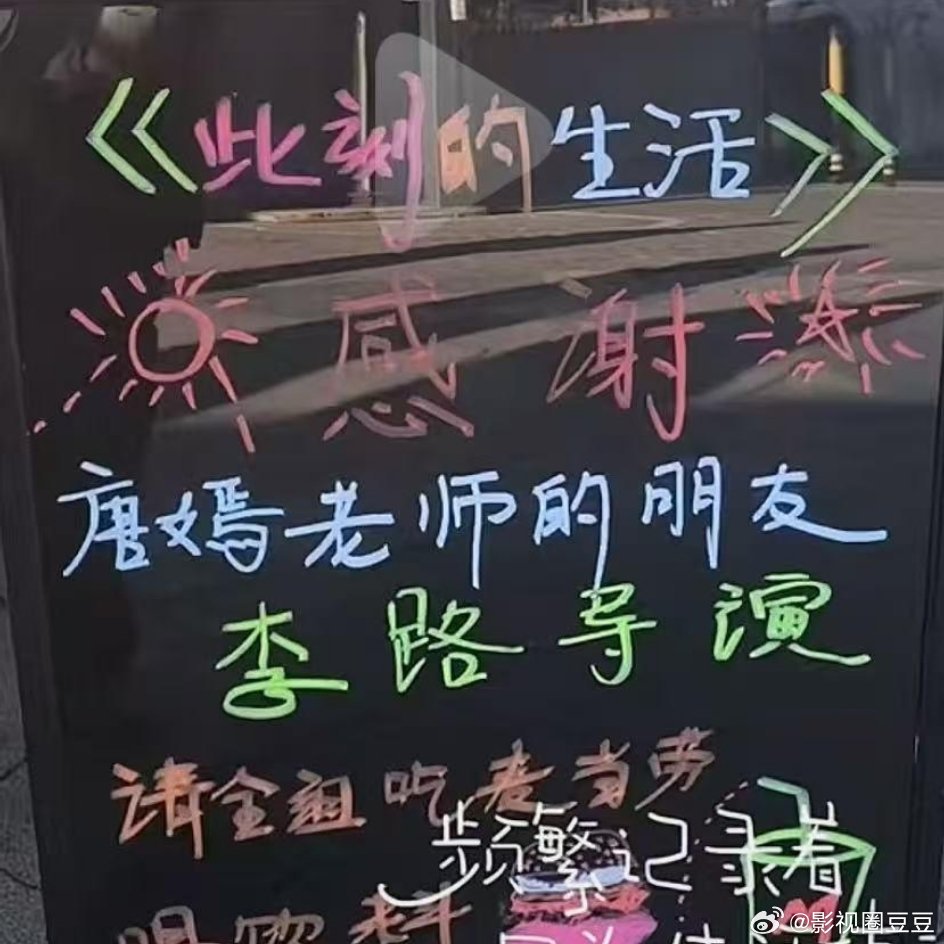 《此刻的生活》
感谢
唐嫣老师的朋友
李路导演
请全组吃麦当劳
频繁记录着
喝饮料
@影视圈豆豆